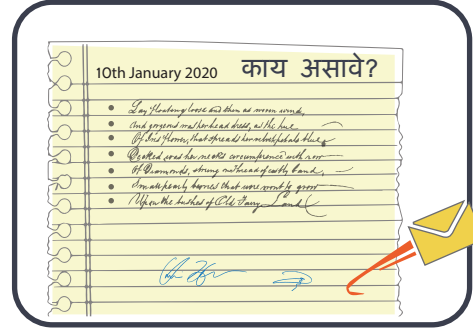 10th January 2020 काय असावे?
Lay floating loose and thin as woven wind,
And gorgeous was her head dress, as the hue
Of Iris flower, that spreads her velvet petals blue,
Decked was her neck's circumference with row
Of Diamonds, strung on thread of costly band,
Small pearly berries that were wont to grow
Upon the bushes of Old Fairy Land